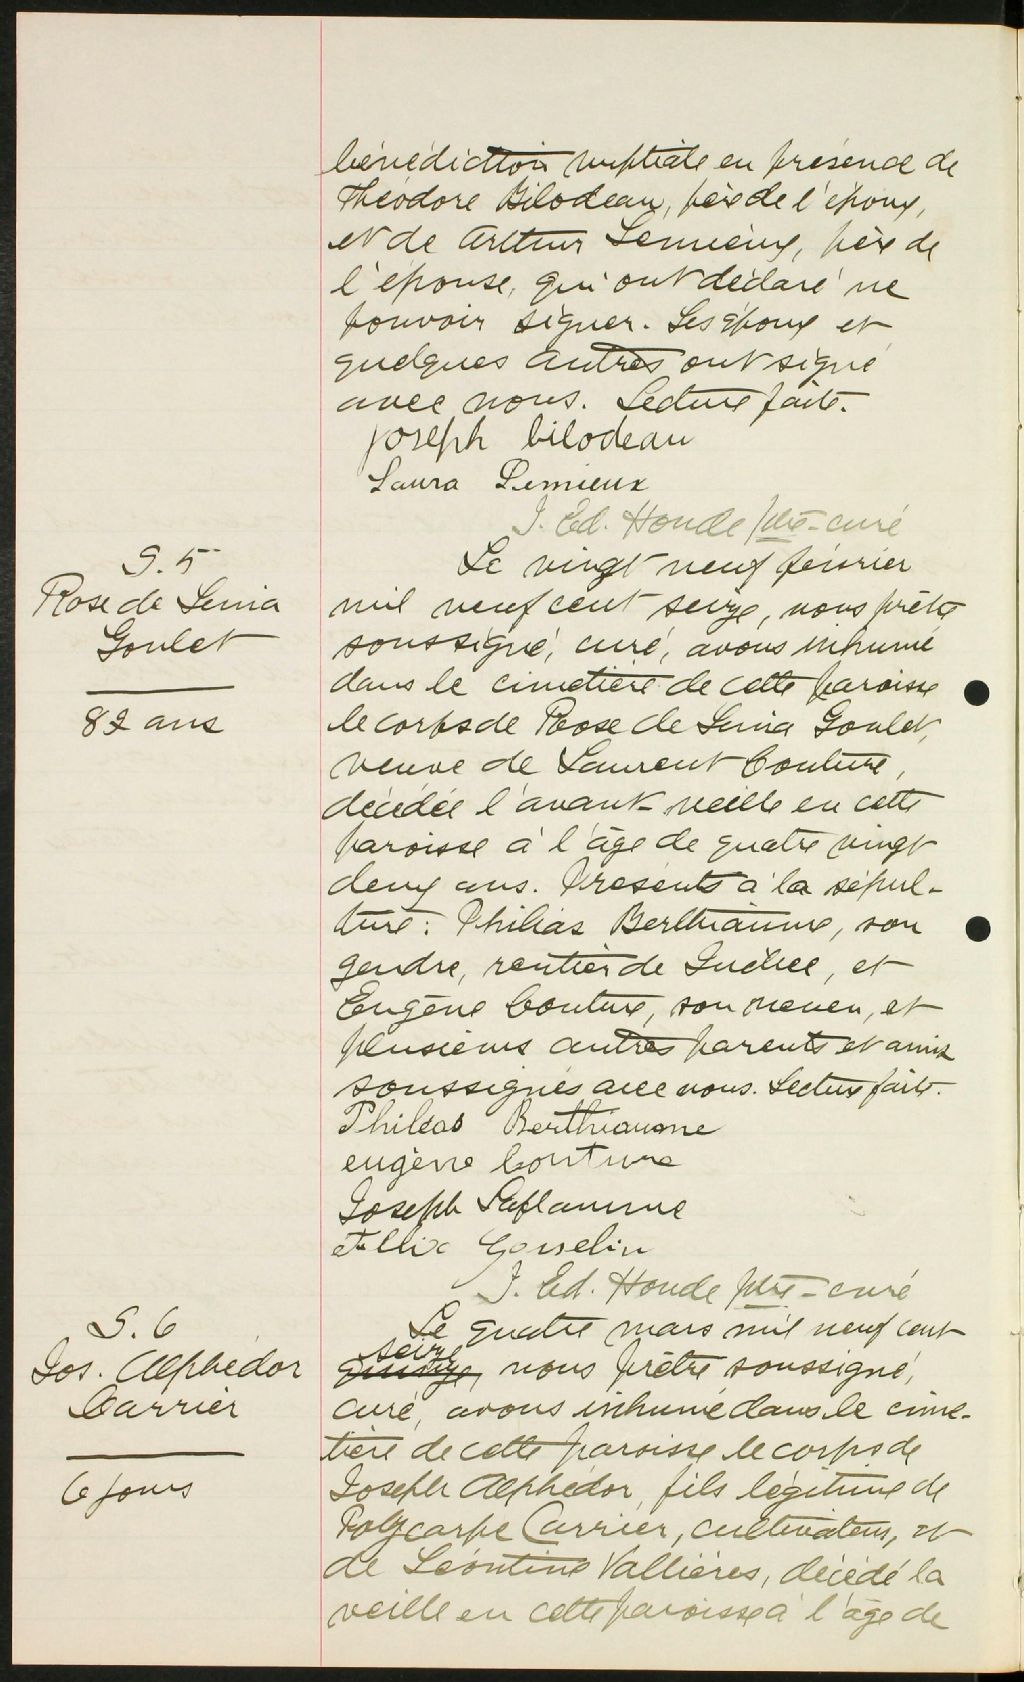 bénédiction nuptiale en présence de
Théodore Bilodeau, père de l'époux,
et de Arthur Lemieux, père de
l'épouse, qui ont déclaré ne
pouvoir signer. Les époux et
quelques autres ont signé
avec nous. Lecture faite.
Joseph bilodeau
Laura Lemieux
J. Ed. Houde ptre-curé
S. 5
Rose de Lima
Goulet
82 ans
Le vingt neuf février
mil neuf cent seize, nous prêtre
soussigné, curé, avons inhumé
dans le cimetière de cette paroisse
le corps de Rose de Lima Goulet,
veuve de Laurent Couture,
décédée l'avant-veille en cette
paroisse à l'âge de quatre vingt
deux ans. Présents à la sépul-
ture: Philias Berthiaume, son
gendre, rentier de Québec, et
Eugène Couture, son neveu, et
plusieurs autres parents et amis
soussignés avec nous. Lecture faite.
Philéas Berthiaume
eugène Couture
Joseph Laflamme
Félix Gosselin
J. Ed. Houde ptre-curé
S. 6
Jos. Alphédor
Carrier
6 jours
Le quatre mars mil neuf cent
seize
quinze, nous prêtre soussigné,
curé, avons inhumé dans le cime-
tière de cette paroisse le corps de
Joseph Alphédor, fils légitime de
Polycarpe Carrier, cultivateur, et
de Léontine Vallières, décédé la
veille en cette paroisse à l'âge de